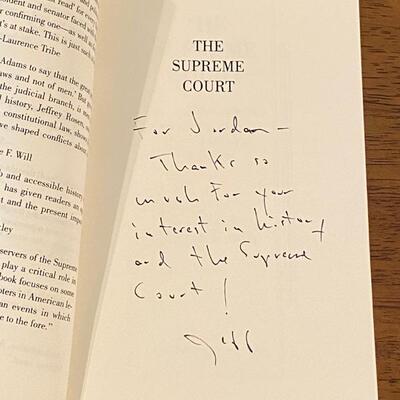 dent and senator faced
confirming one—as well as
at's at stake. This is just
-Laurence Tribe
Adams to say that the great
aws and not of men.' But
the judicial branch, is
d history, Jeffrey Rosen,
constitutional law, show
ve shaped conflicts about
e F. Will
b and accessible history
has given readers an
t and the present
ley
servers of the Supreme
play a critical role in
book focuses on some
oters in American le-
an events in which
e to the fore."
THE
SUPREME
COURT
For Jordan –
Thanks so
much for your
interest in history
and the Supreme
Court!
Jeff